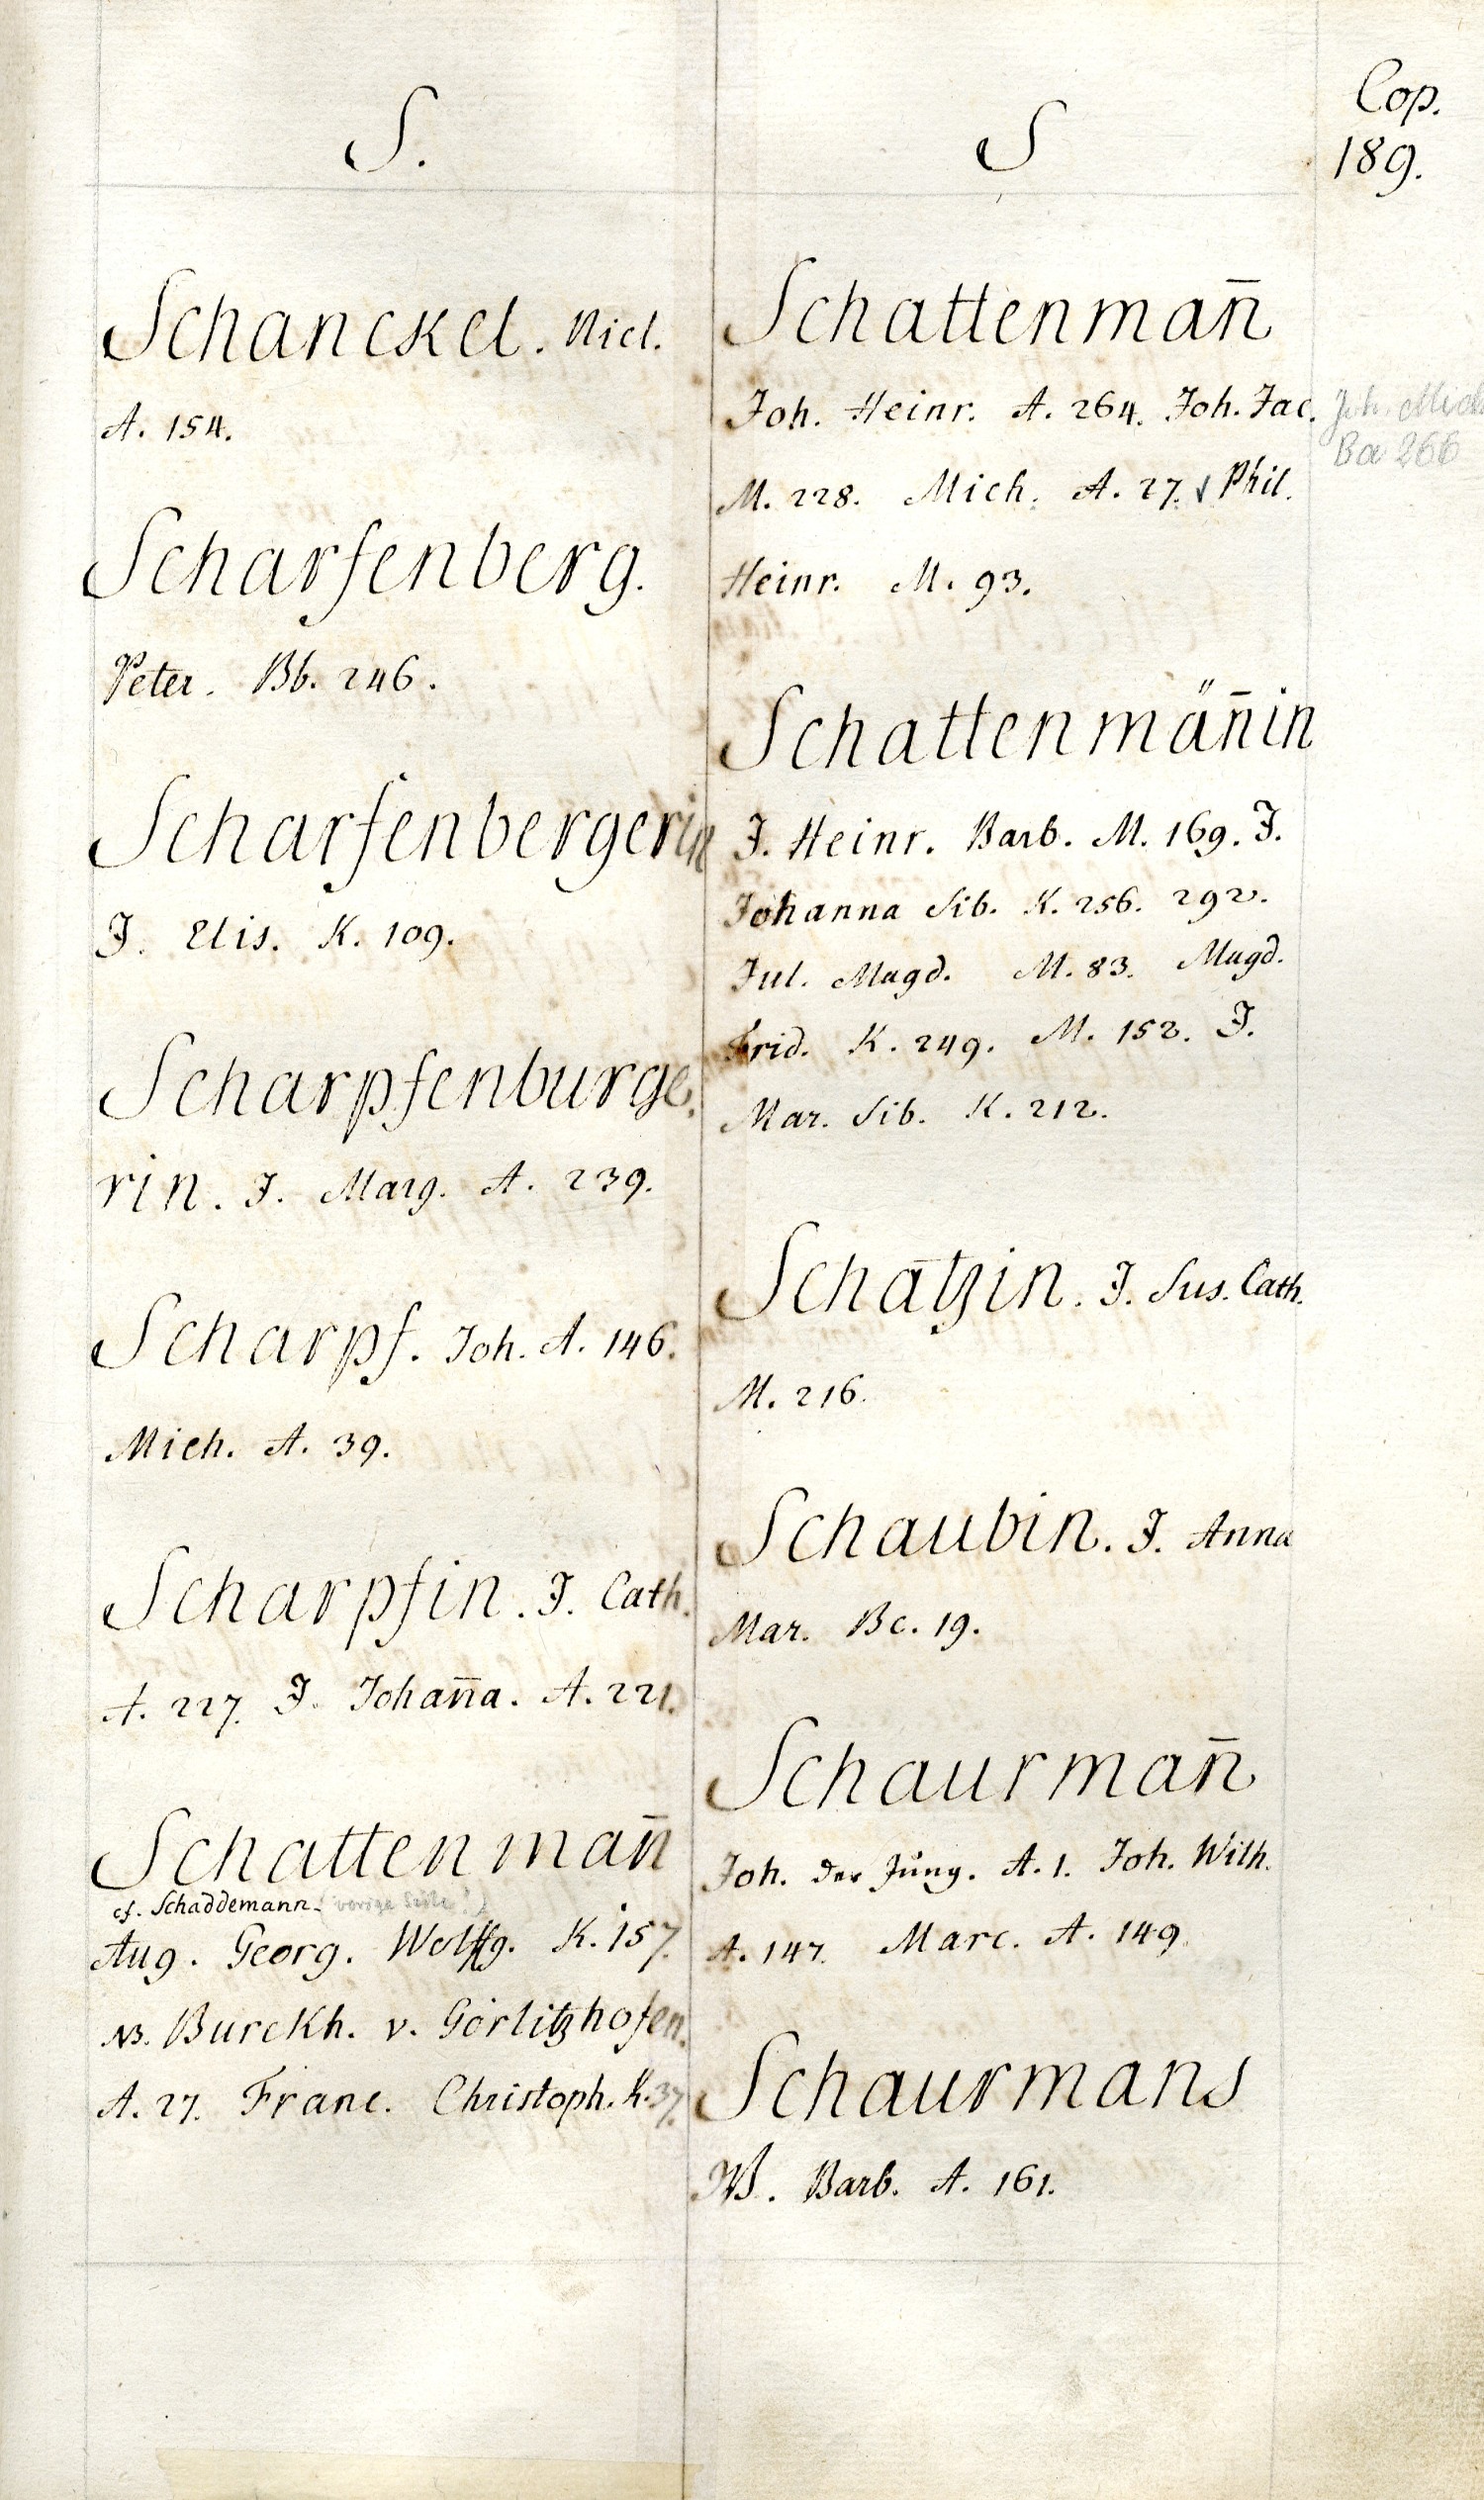 S.
Schanckel. Nicl.
A. 154.
Scharfenberg.
Peter. Bb. 246.
Scharfenbergerin
J. Elis. K. 109.
Scharpfenburge.
rin. J. Marg. A. 239.
Scharpf. Joh. A. 146.
Mich. A. 39.
Scharpfin. J. Cath.
A. 227. J. Johan̄a. A. 221.
Schattenman̄
cf. Schaddemann. (vorige Seite!)
Aug. Georg. Wolffg. K. 157.
NB. Burckh. v. Görlitzhofen.
A. 27. Franc. Christoph. K. 37.
S
Schattenman̄
Joh. Heinr. A. 264. Joh. Jac.
M. 228. Mich. A. 27. Phil.
Heinr. M. 93.
Schattenmän̄in
J. Heinr. Barb. M. 169. J.
Johanna Sib. K. 256. 292.
Jul. Magd. M. 83. Magd.
Frid. K. 249. M. 152. J.
Mar. Sib. K. 212.
Schatzin. J. Sus. Cath.
M. 216.
Schaubin. J. Anna
Mar. Bc. 19.
Schaurman̄
Joh. der Jüng. A. 1. Joh. Wilh.
A. 147. Marc. A. 149.
Schaurmans
W. Barb. A. 161.
Cop.
189.
Joh. Mich
Ba 266